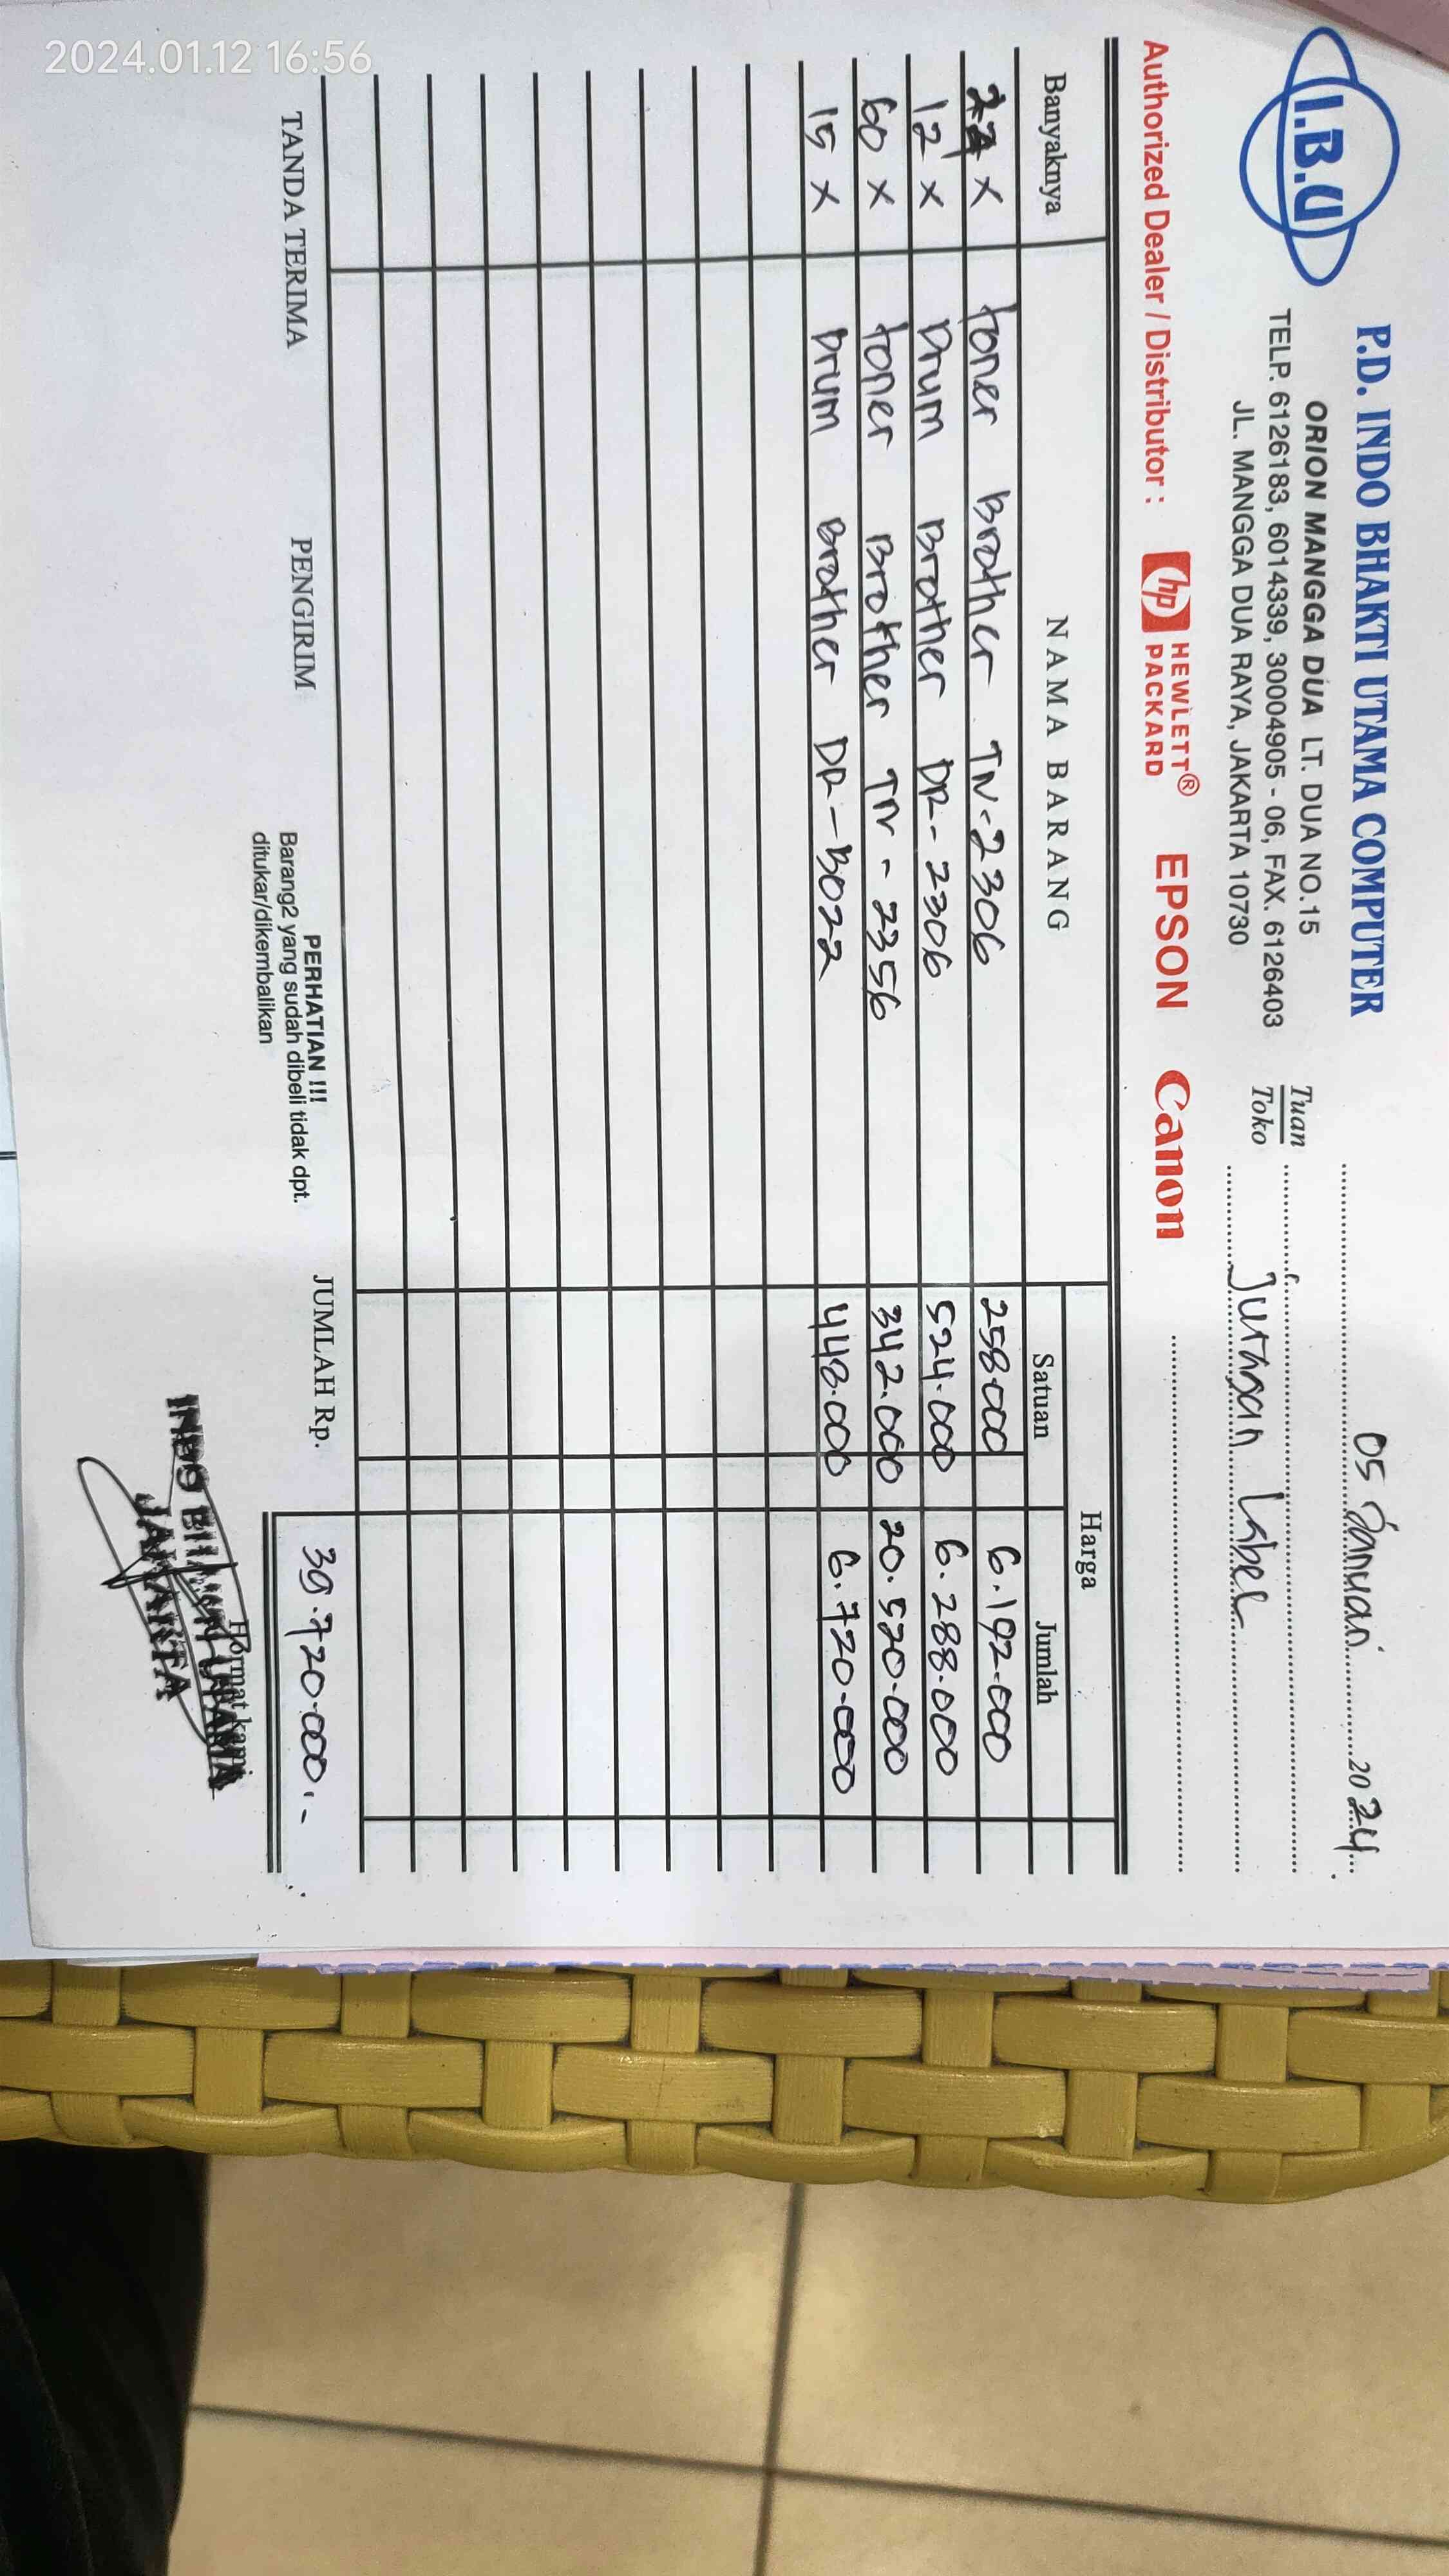 2024.01.12 16:56
I.B.U
P.D. INDO BHAKTI UTAMA COMPUTER
ORION MANGGA DUA LT. DUA NO.15
TELP. 6126183, 6014339, 30004905 - 06, FAX. 6126403
JL. MANGGA DUA RAYA, JAKARTA 10730
05 Januari 2024
Tuan
Toko
Juragan Label
Authorized Dealer / Distributor : hp HEWLETT® PACKARD EPSON Canon
Banyaknya NAMA BARANG Harga
Satuan Jumlah
24 x Toner Brother TN-2306 258.000 6.192.000
12 x Drum Brother DR-2306 524.000 6.288.000
60 x Toner Brother TN-2356 342.000 20.520.000
15 x Drum Brother DR-B022 448.000 6.720.000
TANDA TERIMA PENGIRIM JUMLAH Rp. 39.720.000,-
PERHATIAN !!!
Barang2 yang sudah dibeli tidak dpt.
ditukar/dikembalikan
Hormat kami
INDO BHAKTI UTAMA
JAKARTA